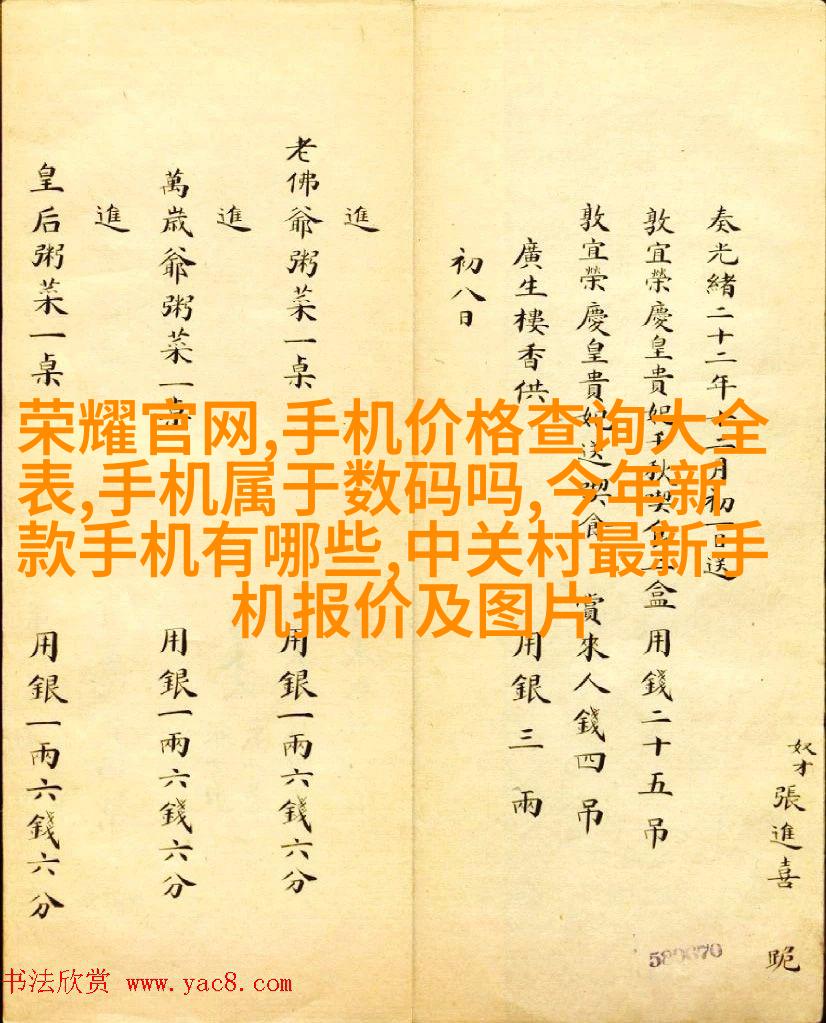 奴才張進喜 跪
奏光緒二十二年十二月初一日送
敦宜榮慶皇貴妃千秋喫食一盒用錢二十五吊
敦宜榮慶皇貴妃送喫食 賞來人錢四吊
廣生樓香供 用銀三兩
初八日
進
老佛爺粥菜一桌 用銀一兩六錢六分
進
萬歲爺粥菜一桌 用銀一兩六錢六分
進
皇后粥菜一桌 用銀一兩六錢六分
荣耀官网,手机价格查询大全
表,手机属于数码吗,今年新
款手机有哪些,中关村最新手
机报价及图片
书法欣赏 www.yac8.com